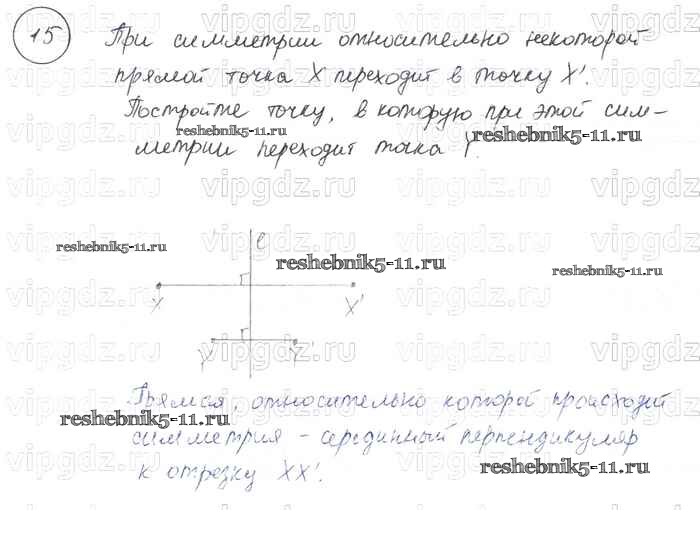 15
При симметрии относительно некоторой
прямой точка X переходит в точку X'.
Постройте точку, в которую при этой сим-
метрии переходит точка Y.
ℓ
X X'
Y Y'
Прямая, относительно которой происходит
симметрия - серединный перпендикуляр
к отрезку XX'.
vipgdz.ru vipgdz.ru vipgdz.ru vipgdz.ru
reshebnik5-11.ru
reshebnik5-11.ru
reshebnik5-11.ru
reshebnik5-11.ru
reshebnik5-11.ru
reshebnik5-11.ru
reshebnik5-11.ru